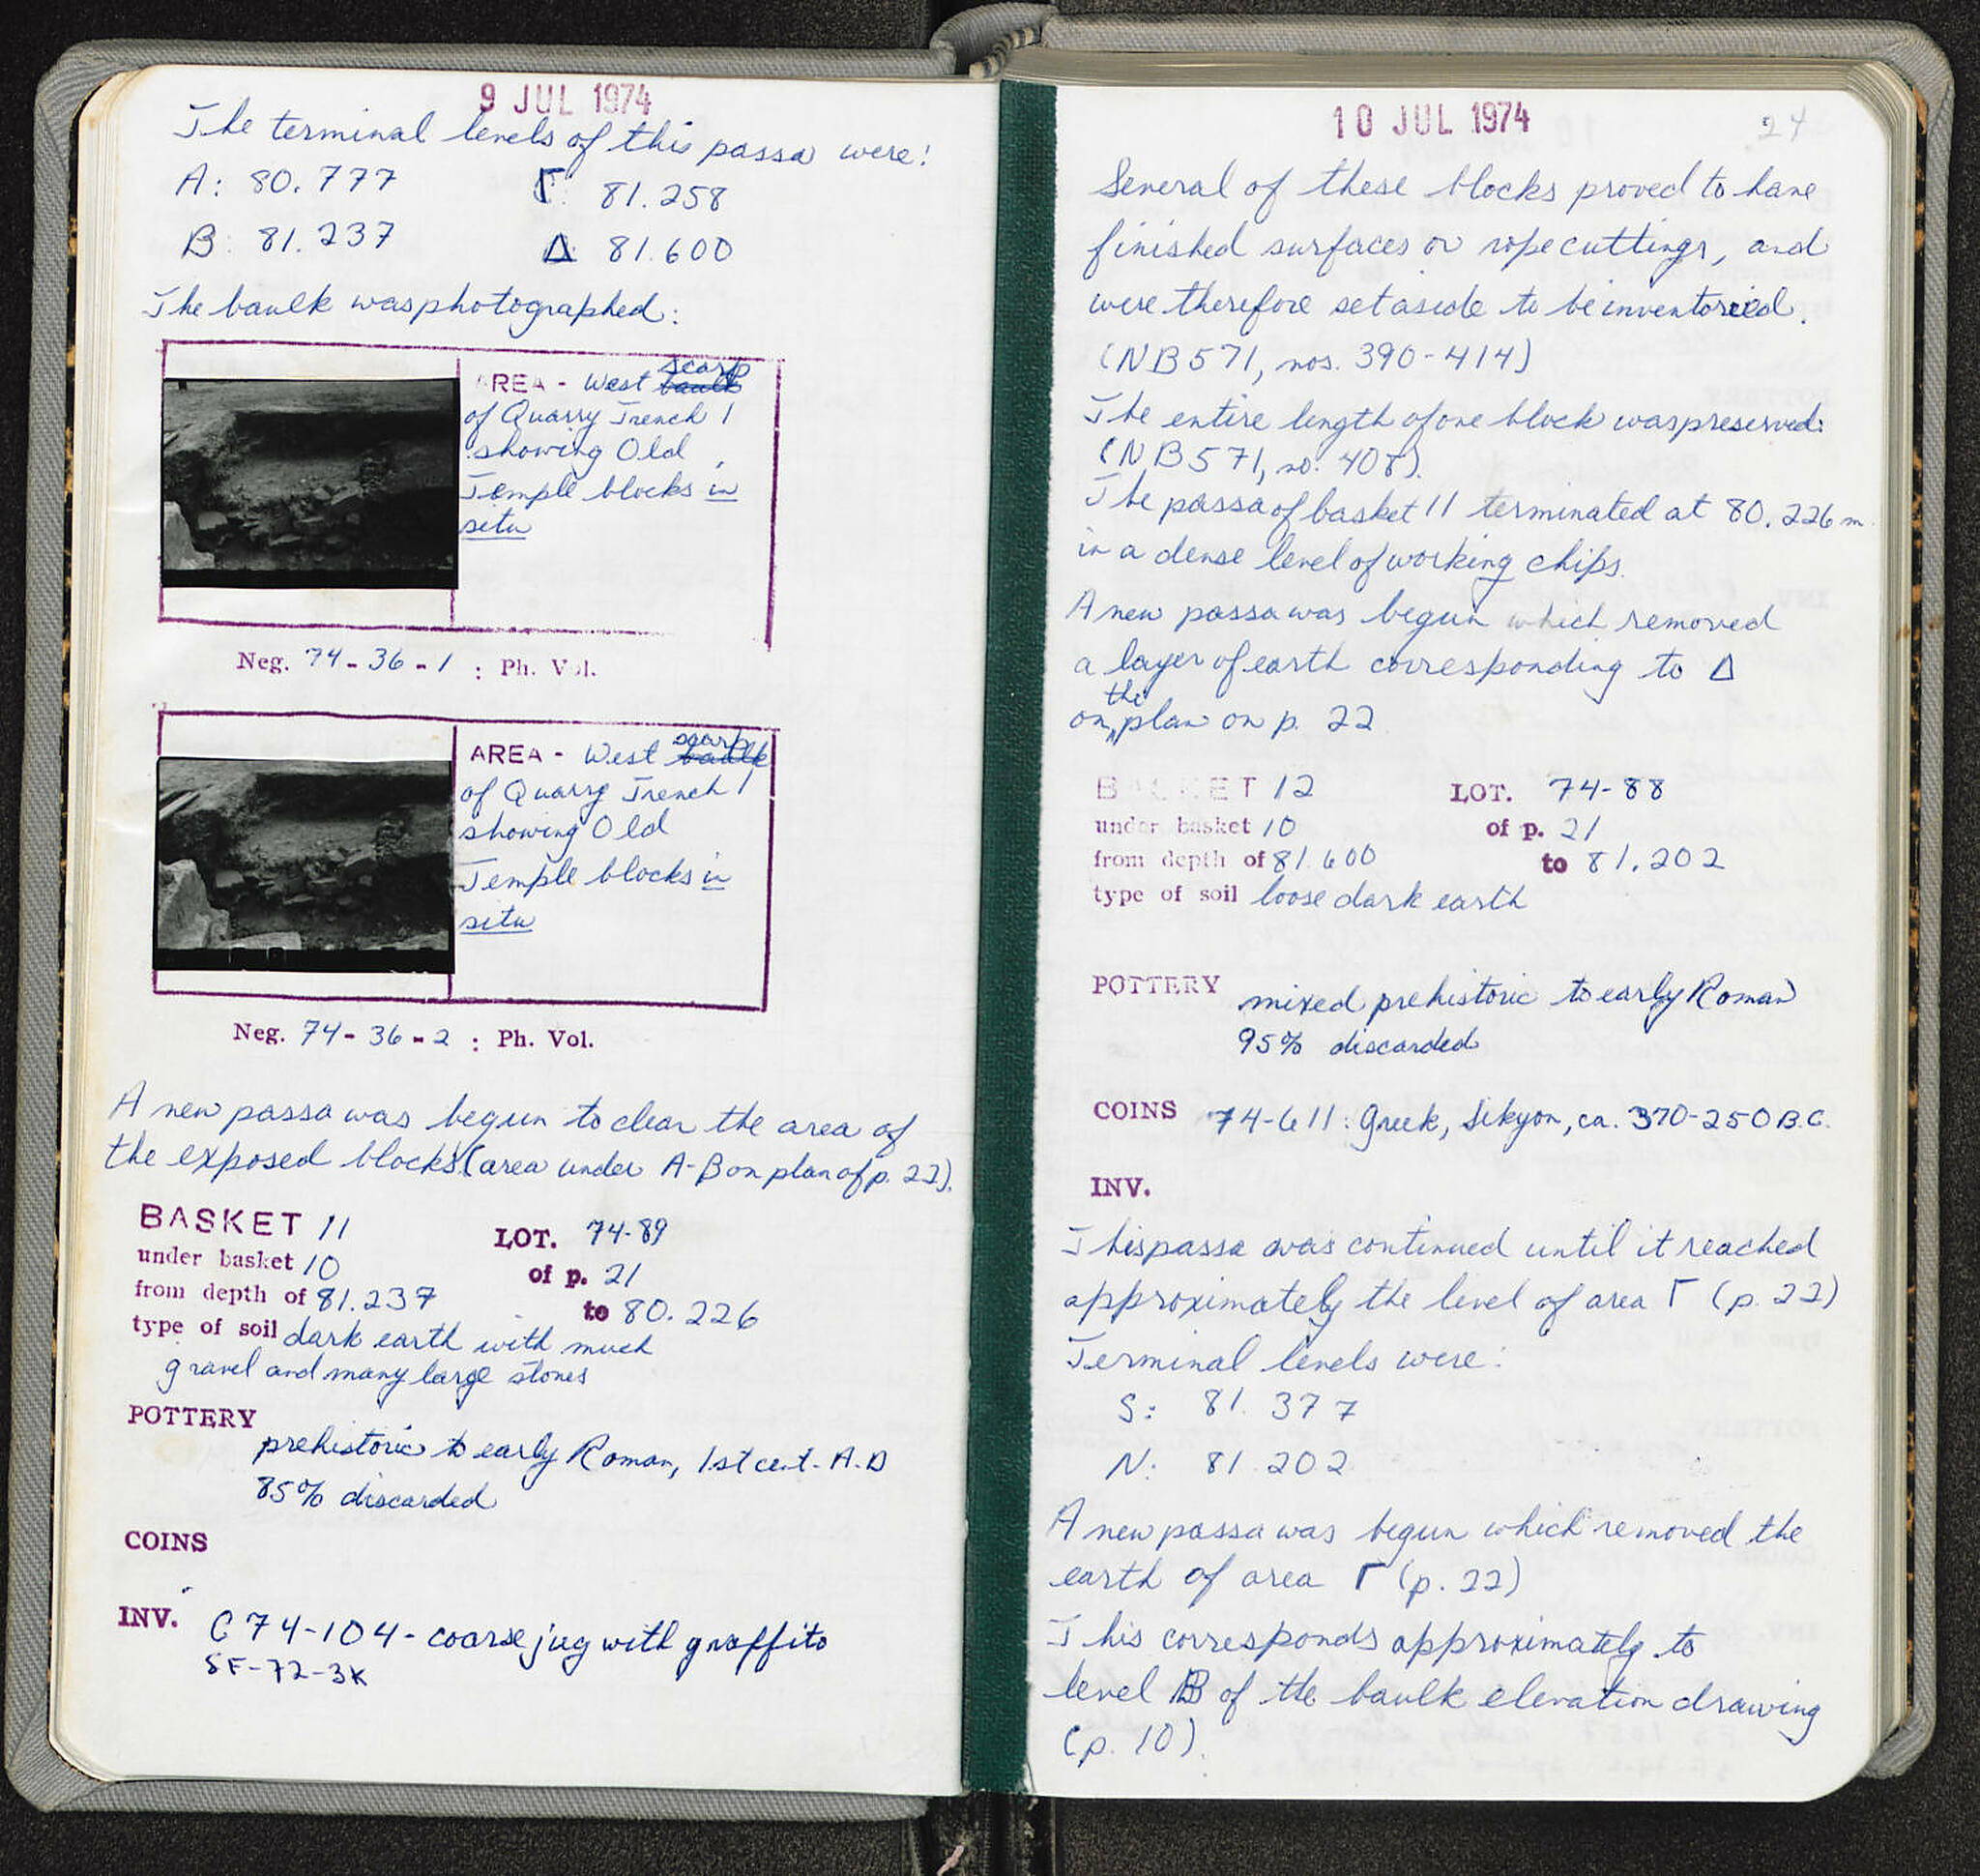 9 JUL 1974
The terminal levels of this passa were:
A: 80.777 Γ: 81.258
B: 81.237 Δ: 81.600
The baulk was photographed:
AREA - West baulk scarp
of Quarry Trench 1
showing Old
Temple blocks in
situ
Neg. 74-36-1 : Ph. Vol.
AREA - West baulk scarp
of Quarry Trench 1
showing Old
Temple blocks in
situ
Neg. 74-36-2 : Ph. Vol.
A new passa was begun to clear the area of
the exposed blocks (area under A-B on plan of p. 22).
BASKET 11 LOT. 74-89
under basket 10 of p. 21
from depth of 81.237 to 80.226
type of soil dark earth with much
gravel and many large stones
POTTERY
prehistoric to early Roman, 1st cent. A.D
85% discarded
COINS
INV. C 74-104 - coarse jug with graffito
SF-72-3K
10 JUL 1974 24
Several of these blocks proved to have
finished surfaces or rope cuttings, and
were therefore set aside to be inventoried.
(NB 571, nos. 390-414)
The entire length of one block was preserved:
(NB 571, no. 408).
The passa of basket 11 terminated at 80.226 m
in a dense level of working chips.
A new passa was begun which removed
a layer of earth corresponding to Δ
on the plan on p. 22
BASKET 12 LOT. 74-88
under basket 10 of p. 21
from depth of 81.600 to 81.202
type of soil loose dark earth
POTTERY mixed prehistoric to early Roman
95% discarded
COINS 74-611: Greek, Sikyon, ca. 370-250 B.C.
INV.
This passa was continued until it reached
approximately the level of area Γ (p. 22)
Terminal levels were:
S: 81.377
N: 81.202
A new passa was begun which removed the
earth of area Γ (p. 22)
This corresponds approximately to
level B of the baulk elevation drawing
(p. 10).